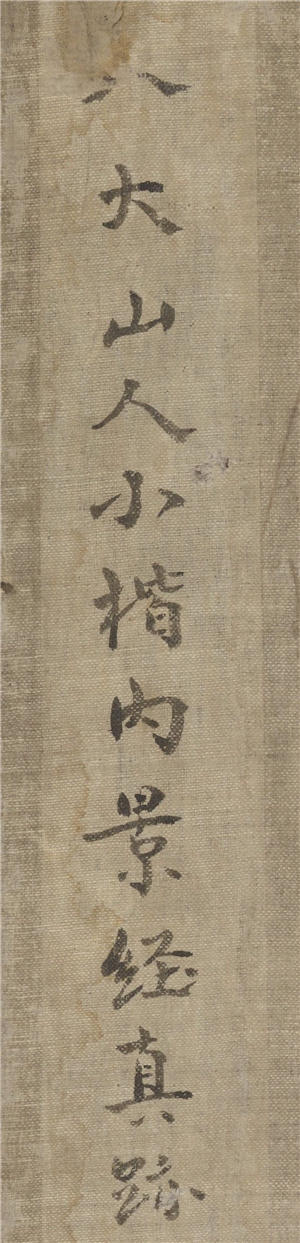 八大山人小楷内景經真跡